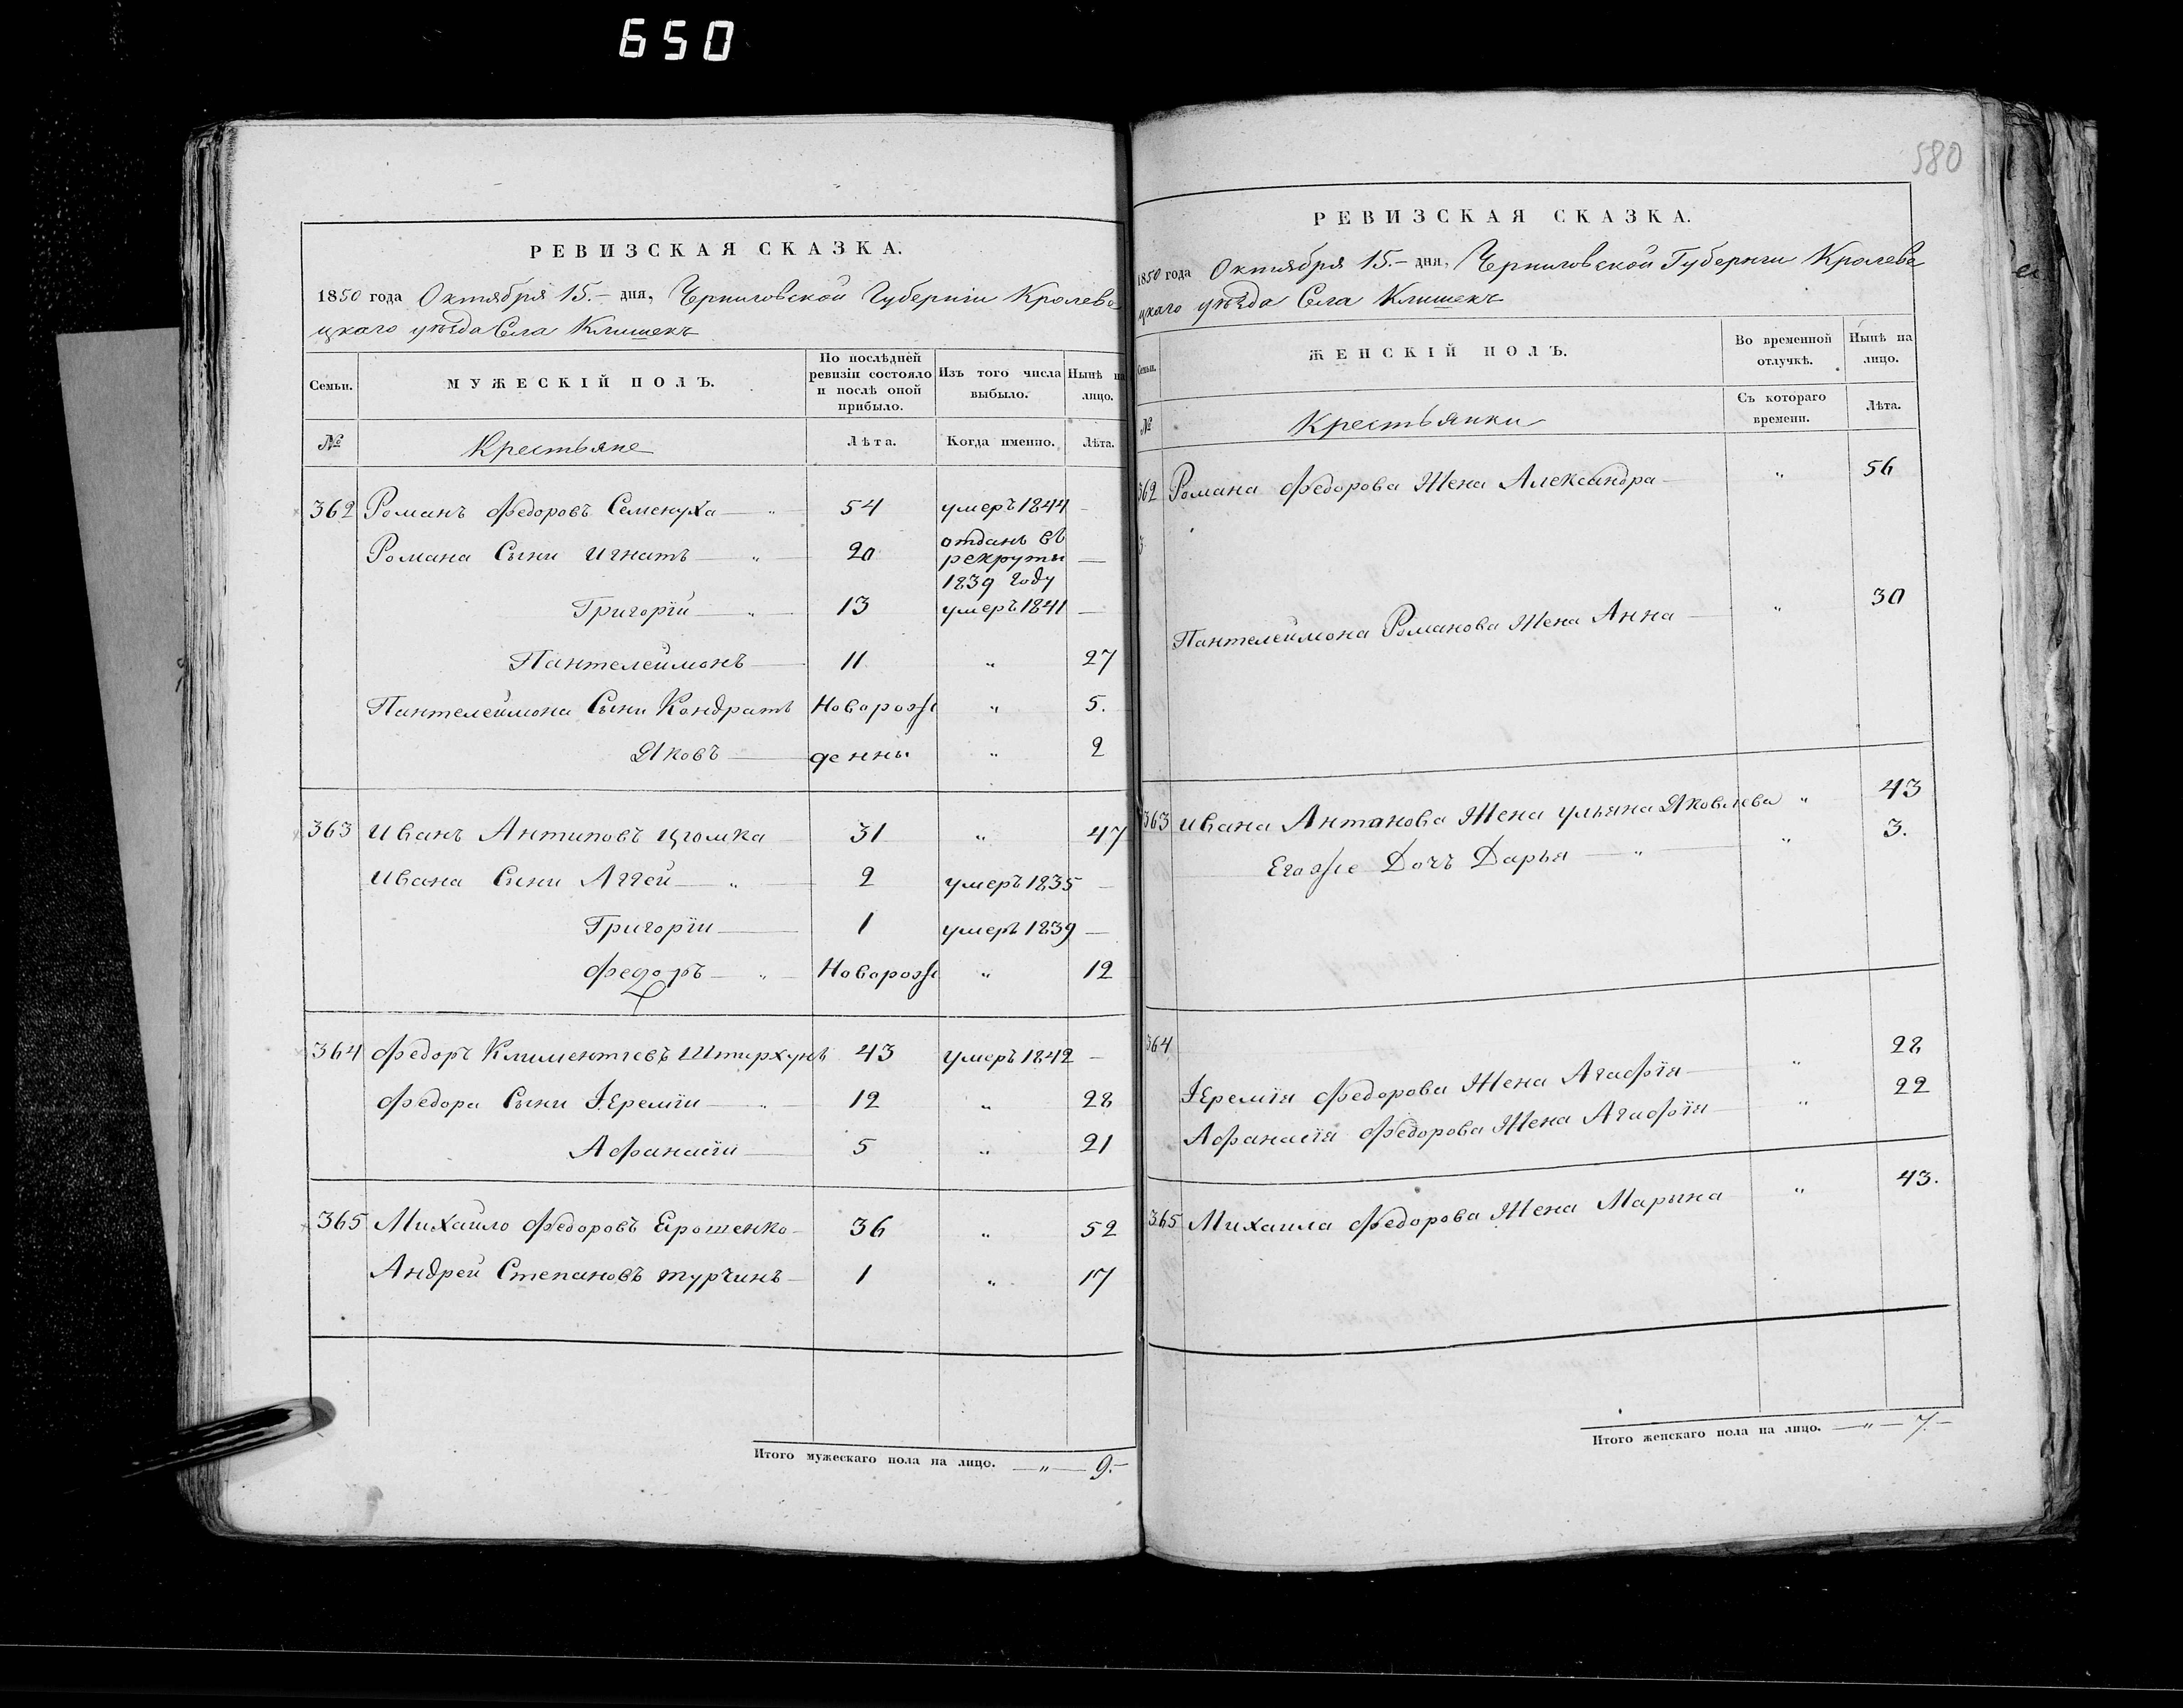 650
РЕВИЗСКАЯ СКАЗКА.
1850 года Октября 15.– дня, Черниговской Губерніи Кролеве
цкаго уѣзда Села Клишекъ
Семьи. МУЖЕСКІЙ ПОЛЪ. По послѣдней ревизіи состояло и послѣ оной прибыло. Изъ того числа выбыло. Нынѣ на лицо.
№ Крестьяне Лѣта. Когда именно. Лѣта.
362 Романъ Федоровъ Семенуха — „ 54 умеръ 1844 –
Романа Сыни Игнатъ — „ 20 отданъ въ рекруты 1839 году —
Григорій — „ 13 умеръ 1841 —
Пантелеймонъ — 11 „ 27
Пантелеймона Сыни Кондратъ Новорож „ 5.
Яковъ — денны „ 2
363 Иванъ Антиповъ Цгомка 31 „ 47
Ивана Сыни Аггей — „ 2 умеръ 1835 –
Григоріи — 1 умеръ 1839 —
Федоръ — „ Новорож „ 12
364 Федоръ Климентіевъ Штирхунъ 43 умеръ 1842 –
Федора Сыни Іеремiи — „ 12 „ 28
Афанасіи — 5 „ 21
365 Михайло Федоровъ Ерошенко 36 „ 52
Андрей Степановъ Турчинъ – 1 „ 17
Итого мужескаго пола на лицо. — „ — 9.–
580
РЕВИЗСКАЯ СКАЗКА.
1850 года Октября 15.– дня, Черниговской Губерніи Кролеве
цкаго уѣзда Села Клишекъ
Семьи. ЖЕНСКІЙ ПОЛЪ. Во временной отлучкѣ. Нынѣ на лицо.
№ Крестьянки Съ котораго времени. Лѣта.
362 Романа Федорова Жена Александра – „ 56
Пантелеймона Романова Жена Анна — „ 30
363 Ивана Антонова Жена Ульяна Яковлева „ 43
Егоже Дочь Дарья — „ — „ 3.
364
Іеремія Федорова Жена Агафія — „ 28
Афанасія Федорова Жена Агафія — „ 22
365 Михаила Федорова Жена Марына „ 43.
Итого женскаго пола на лицо. — „ — 7.–